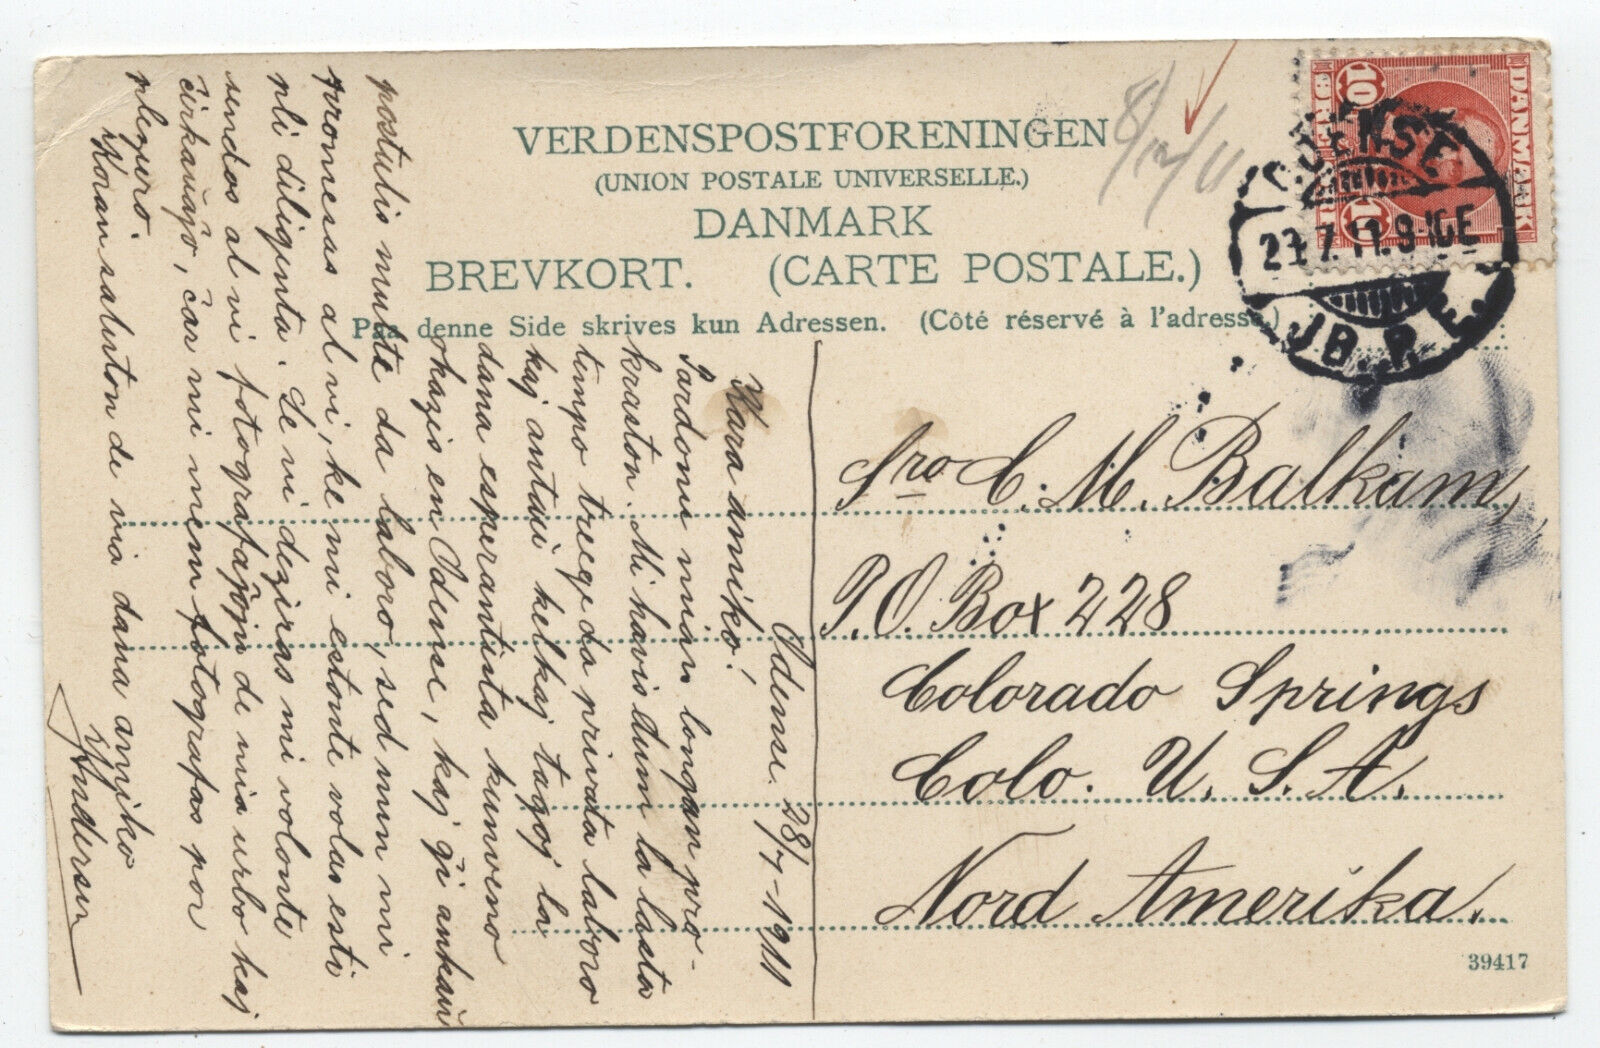 VERDENSPOSTFORENINGEN
(UNION POSTALE UNIVERSELLE.)
DANMARK
BREVKORT. (CARTE POSTALE.)
Paa denne Side skrives kun Adressen. (Côté réservé à l'adresse.)
8/12/11
DANMARK
10 10
ODENSE
27.7.11.9-10E
JB.P.E.
Sro C. M. Balkam,
P.O. Box 228
Colorado Springs
Colo. U. S. A.
Nord Amerika.
39417
Odense. 28/7-1911
Kara amiko!
Pardonu mian longan pro-
kraston. Mi havis dum la lasta
tempo treege da privata laboro
kaj antaŭ kelkaj tagoj la
dana esperantista kunveno
okazis en Odense, kaj ĝi ankaŭ
postulis multe da laboro, sed nun mi
promesas al vi, ke mi estonte volas esti
pli diligenta. Se vi deziras mi volonte
sendos al vi fotografaĵojn de mia urbo kaj
ĉirkaŭaĵo, ĉar mi mem fotografas por
plezuro.
Koran saluton de via dana amiko
Andersen